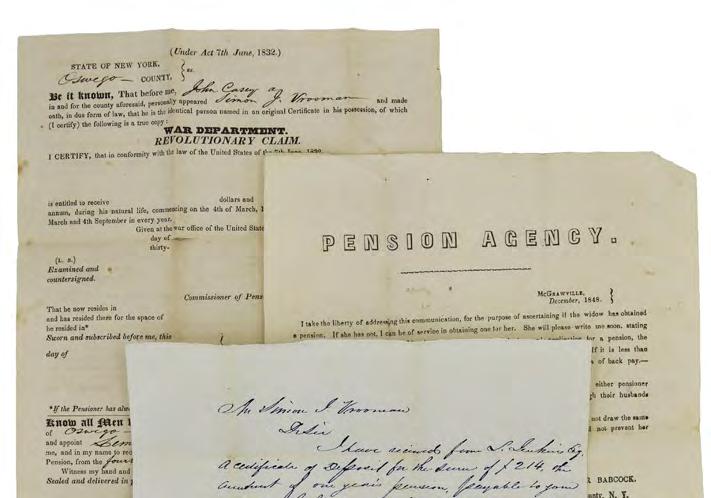 (Under Act 7th June, 1832.)
STATE OF NEW YORK,
Oswego COUNTY, } ss.
Be it known, That before me, John Casey a
in and for the county aforesaid, personally appeared Simon J. Vrooman and made
oath, in due form of law, that he is the identical person named in an original Certificate in his possession, of which
(I certify) the following is a true copy:
WAR DEPARTMENT.
REVOLUTIONARY CLAIM.
I CERTIFY, that in conformity with the law of the United States of the 7th June, 1832,
is entitled to receive dollars and
annum, during his natural life, commencing on the 4th of March, 1
March and 4th September in every year.
Given at the war office of the United State
day of
thirty-
(L. S.)
Examined and
countersigned.
Commissioner of Pens
That he now resides in
and has resided there for the space of
he resided in*
Sworn and subscribed before me, this
day of
*If the Pensioner has alwa
Know all Men
of Oswego
and appoint
me, and in my name to rec
Pension, from the four
Witness my hand and
Sealed and delivered in
PENSION AGENCY.
McGRAWVILLE,
December, 1848. }
I take the liberty of addressing this communication, for the purpose of ascertaining if the widow has obtained
a pension. If she has not, I can be of service in obtaining one for her. She will please write me soon, stating
application for a pension, the
If it is less than
of back pay.—
either pensioner
gh their husbands
not draw the same
not prevent her
R BABCOCK.
unty, N. Y.
Mr Simon J. Vrooman
D. Sir
I have received from L. Jenkins Esq.
a certificate of Deposit for the sum of $214, the
amount of one years pension, payable to your